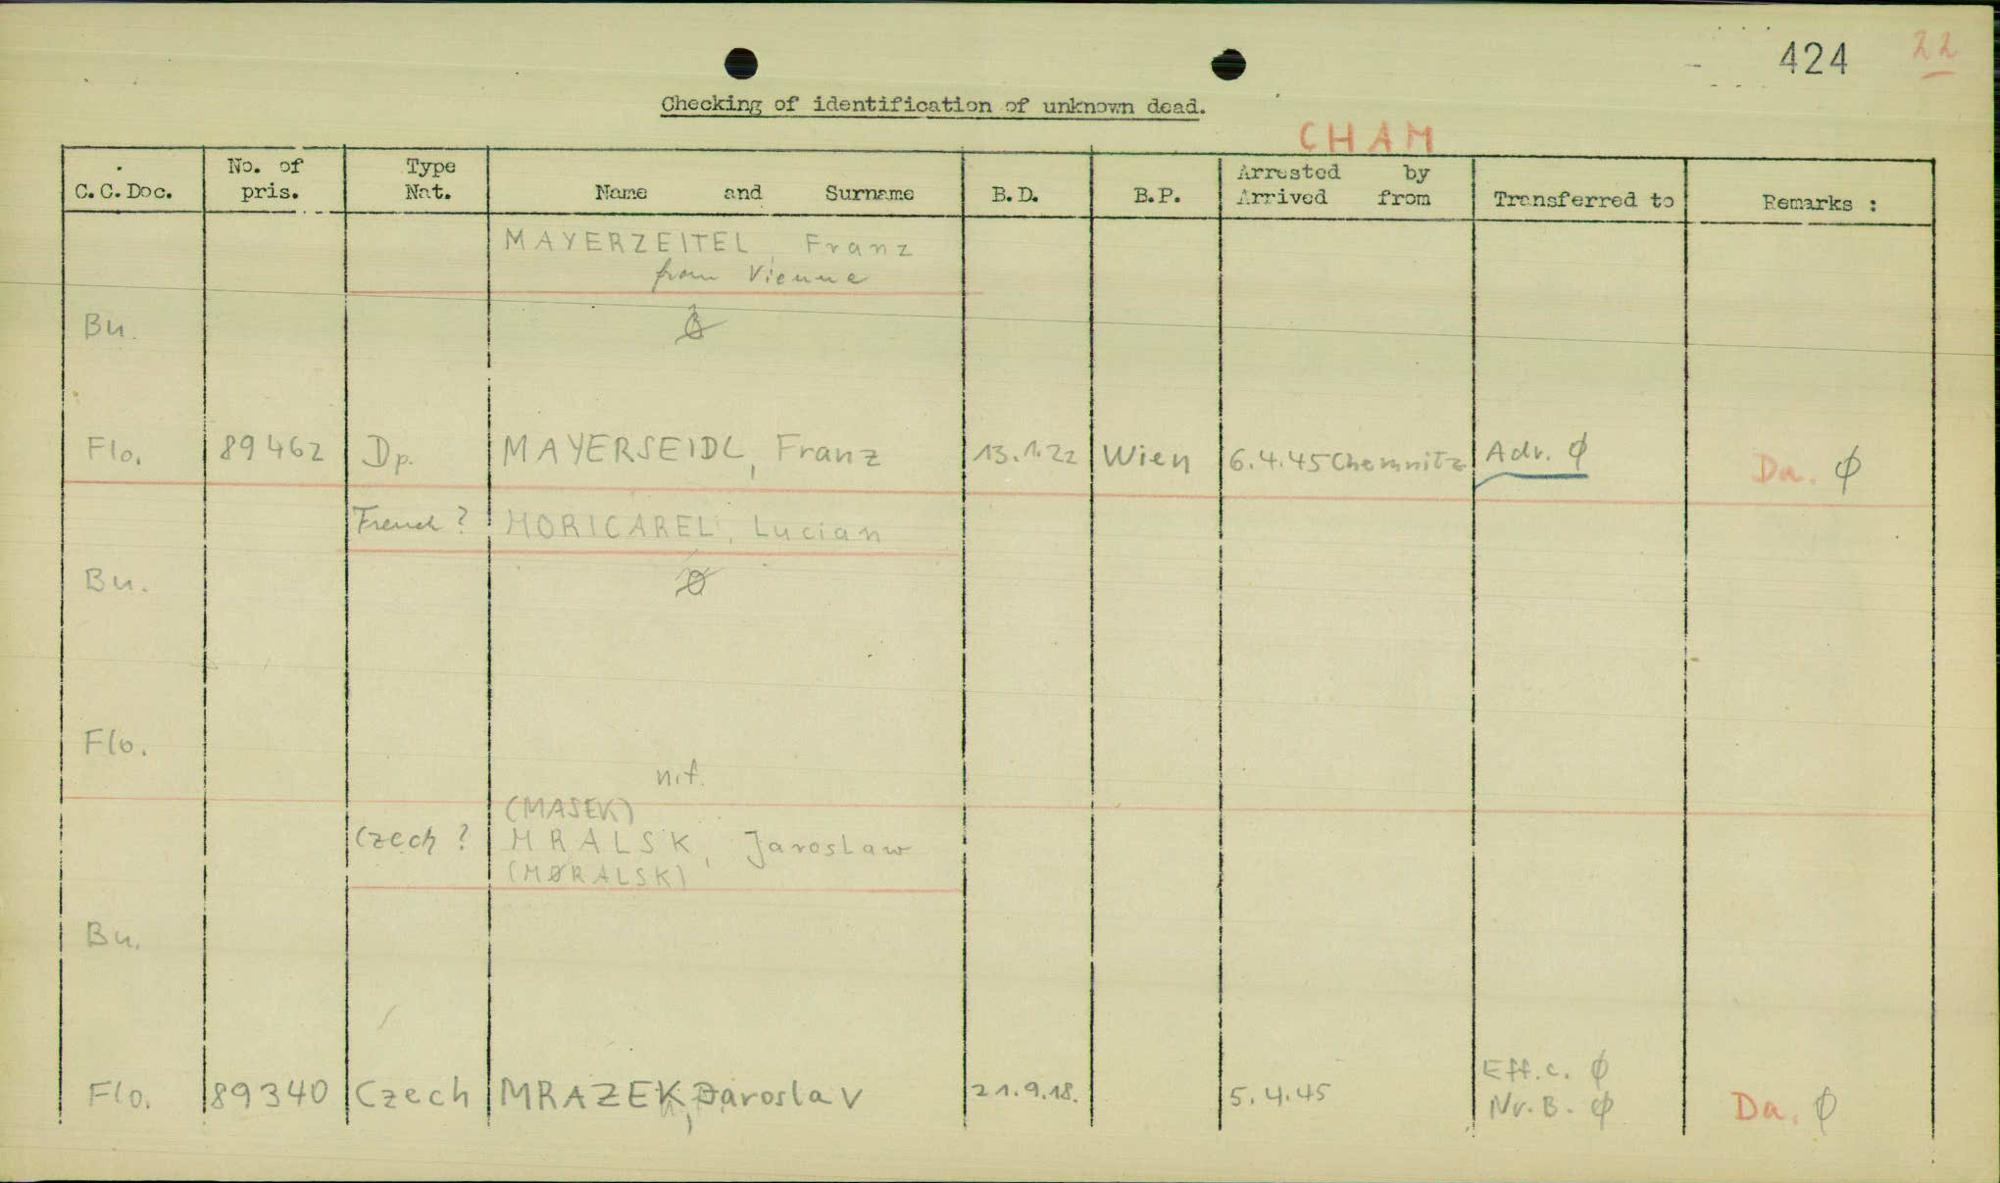 424 22
Checking of identification of unknown dead.
CHAM
C.C.Doc. No. of pris. Type Nat. Name and Surname B.D. B.P. Arrested by Arrived from Transferred to Remarks :
MAYERZEITEL, Franz
from Vienna
Bu. Ø
Flo. 89462 Dp. MAYERSEIDL, Franz 13.1.22 Wien 6.4.45 Chemnitz Adr. Ø Da. Ø
French ? MORICAREL, Lucian
Bu. Ø
Flo.
n.f.
(MASEK)
Czech ? MRALSK, Jaroslaw
(MORALSK)
Bu.
Eff.c. Ø
Flo. 89340 Czech MRAZEK, Jaroslav 21.9.18. 5.4.45 Nr.B. Ø Da. Ø